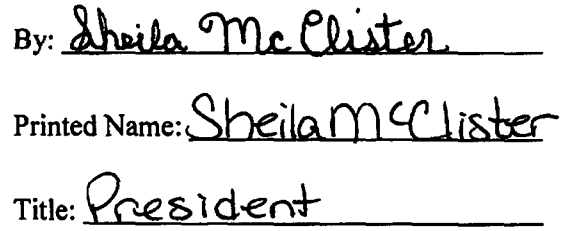 By: Sheila McClister
Printed Name: Sheila McClister
Title: President